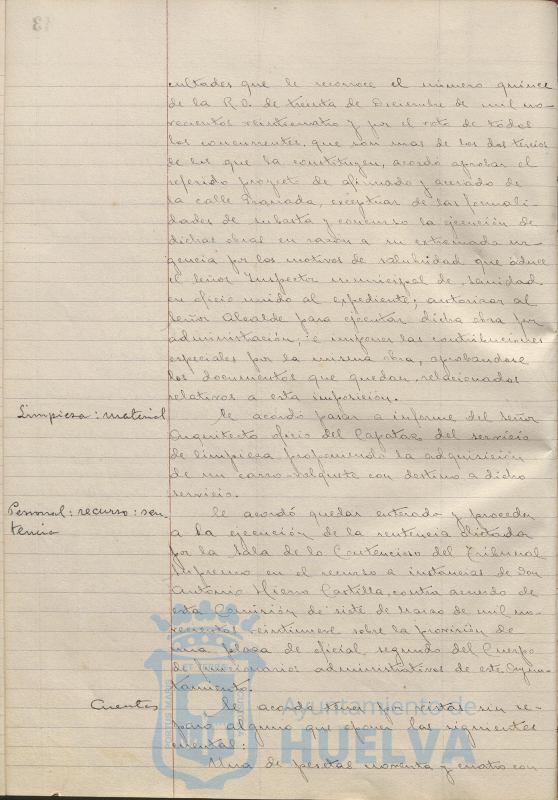 cultades que le reconoce el número quince
de la R.O. de treinta de Diciembre de mil no-
vecientos veinticuatro y por el voto de todos
los concurrentes, que son mas de los dos tercios
de los que la constituyen, acordó aprobar el
referido proyecto de afirmado y acerado de
la calle Granada, exceptuar de las formali-
dades de subasta y concurso la ejecución de
dichas obras en razón a su extremada ur-
gencia por los motivos de salubridad que aduce
el Señor Inspector municipal de Sanidad
en oficio unido al expediente; autorizar al
Señor Alcalde para ejecutar dicha obra por
administración; e imponer las contribuciones
especiales por la misma obra, aprobandose
los documentos que quedan relacionados
relativos a esta imposición.
Limpieza: material
Se acordó pasar a informe del Señor
Arquitecto oficio del Capataz del servicio
de limpieza proponiendo la adquisición
de un carro-volquete con destino a dicho
servicio.
Personal: recurso: sen-
tencia
Se acordó quedar enterado y proceder
a la ejecución de la sentencia dictada
por la Sala de lo Contencioso del Tribunal
Supremo en el recurso a instancias de Don
Antonio Hierro Castilla, contra acuerdo de
esta Comisión de siete de Marzo de mil no-
vecientos veintinueve sobre la provisión de
una plaza de oficial segundo del Cuerpo
de funcionarios administrativos de este Ayun-
tamiento.
Cuentas
Se acordó tener por vistas sin re-
paro alguno que oponer las siguientes
cuentas:
Una de pesetas noventa y cuatro con
Ayuntamiento de
HUELVA